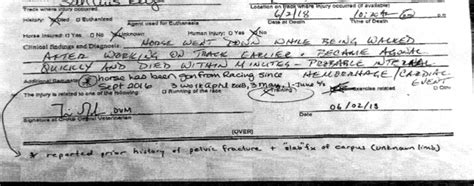 Track where injury occurred (if available)
Location on track where injury occurred (if available)
Injured Died Euthanized Agent used for Euthanasia 6/2/18
Date of Death Time of Death
Horse Insured Yes No Unknown
Clinical findings and Diagnosis: HORSE WENT DOWN WHILE BEING WALKED
AFTER WORKING ON TRACK EARLIER & BECAME AGONAL
QUICKLY AND DIED WITHIN MINUTES - PROBABLE INTERNAL
Additional horse has been gon from Racing since HEMORRHAGE/CARDIAC
Sept 2016 3 works April 2018, 3 May, 1 June EVENT
The injury is related to one of the following Running of the race Training Exercise related Other
DVM 06/02/18
Signature of Official Veterinarian Date
(OVER)
* reported prior history of pelvic fracture + "slab" fx of carpus (unknown limb)